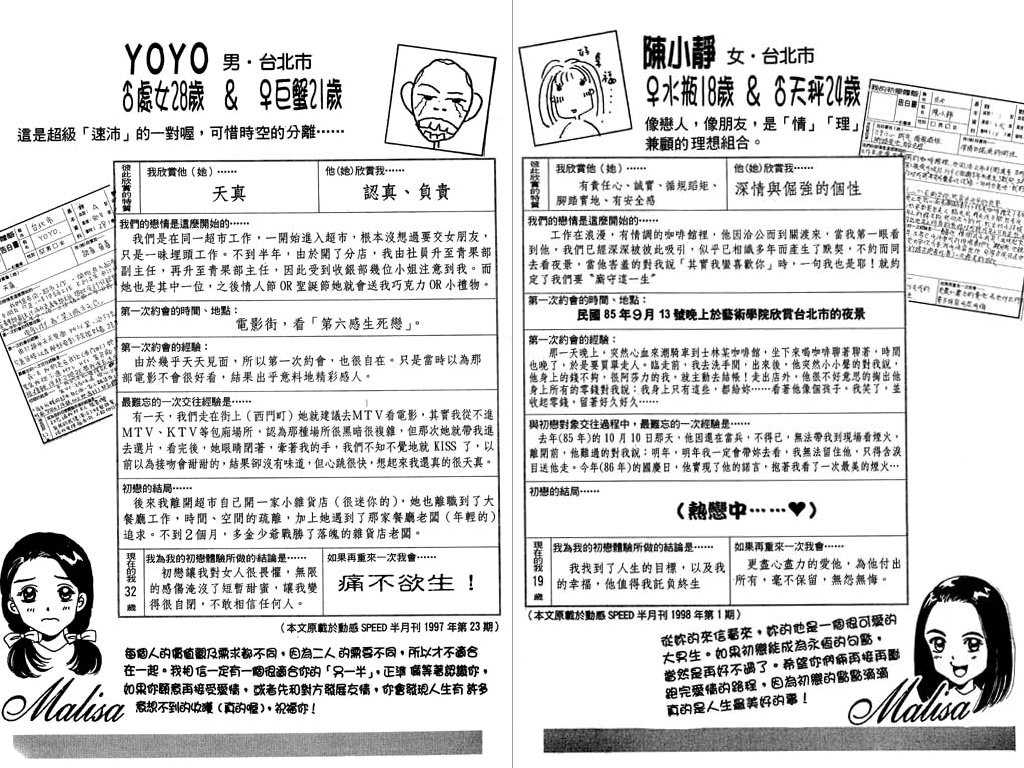 YOYO 男・台北市
♂處女28歲 & ♀巨蟹21歲
這是超級「速沛」的一對喔，可惜時空的分離……
彼此欣賞的特質
我欣賞他（她）……
天真
他(她)欣賞我……
認真、負責
我們的戀情是這麼開始的……
我們是在同一超市工作，一開始進入超市，根本沒想過要交女朋友，
只是一味埋頭工作。不到半年，由於開了分店，我由社員升至青果部
副主任，再升至青果部主任，因此受到收銀部幾位小姐注意到我。而
她也是其中一位，之後情人節OR聖誕節她就會送我巧克力OR小禮物。
第一次約會的時間、地點：
電影街，看「第六感生死戀」。
第一次約會的經驗：
由於幾乎天天見面，所以第一次約會，也很自在。只是當時以為那
部電影不會很好看，結果出乎意料地精彩感人。
最難忘的一次交往經驗是……
有一天，我們走在街上（西門町）她就建議去MTV看電影，其實我從不進
MTV、KTV等包廂場所，認為那種場所很黑暗很複雜，但那次她就帶我進
去選片，看完後，她眼睛閉著，牽著我的手，我們不知不覺地就 KISS 了，以
前以為接吻會甜甜的，結果卻沒有味道，但心跳很快，想起來我還真的很天真。
初戀的結局……
後來我離開超市自己開一家小雜貨店（很迷你的），她也離職到了大
餐廳工作，時間、空間的疏離，加上她遇到了那家餐廳老闆（年輕的）
追求。不到2個月，多金少爺戰勝了落魄的雜貨店老闆。
現在的我
32
歲
我為我的初戀體驗所做的結論是……
初戀讓我對女人很畏懼，無限
的感傷淹沒了短暫甜蜜，讓我變
得很自閉，不敢相信任何人。
如果再重來一次我會……
痛不欲生！
（本文原載於動感 SPEED 半月刊 1997 年第 23 期）
每個人的價值觀及需求都不同，因為二人的需要不同，所以才不適合
在一起。我相信一定有一個很適合你的「另一半」，正準備等著認識你，
如果你願意再接受愛情，或者先和對方發展友情，你會發現人生有許多
意想不到的收穫（真的喔），祝福你！
Malisa
幸福
陳小靜 女・台北市
♀水瓶18歲 & ♂天秤24歲
像戀人，像朋友，是「情」「理」
兼顧的理想組合。
彼此欣賞的特質
我欣賞他（她）……
有責任心、誠實、循規蹈矩、
腳踏實地、有安全感
他(她)欣賞我……
深情與倔強的個性
我們的戀情是這麼開始的……
工作在浪漫，有情調的咖啡館裡，他因洽公而到關渡來，當我第一眼看
到他，我們已經深深被彼此吸引，似乎已相識多年而產生了默契，不約而同
去看夜景，當他害羞的對我說「其實我蠻喜歡你」時，一句我也是耶！就約
定了我們要“廝守這一生”
第一次約會的時間、地點：
民國 85 年 9 月 13 號晚上於藝術學院欣賞台北市的夜景
第一次約會的經驗：
那一天晚上，突然心血來潮騎車到士林某咖啡館，坐下來喝咖啡聊著聊著，時間
也晚了，於是要買單走人。臨走前，我去洗手間，出來後，他突然小小聲的對我說，
他身上的錢不夠，很阿莎力的我，就主動去結帳！走出店外，他很不好意思的掏出他
身上所有的零錢對我說：我身上只有這些，都給妳……看著他像個孩子，我笑了，並
收起零錢，留著好久好久……
與初戀對象交往過程中，最難忘的一次經驗是……
去年(85 年)的 10 月 10 日那天，他因還在當兵，不得已，無法帶我到現場看煙火，
離開前，他難過的對我說：明年，明年我一定會帶妳去看，我無法留住他，只得含淚
目送他走。今年(86 年)的國慶日，他實現了他的諾言，抱著我看了一次最美的煙火…
初戀的結局……
（熱戀中……♥）
現在的我
19
歲
我為我的初戀體驗所做的結論是……
我找到了人生的目標，以及我
的幸福，他值得我託負終生
如果再重來一次我會……
更盡心盡力的愛他，為他付出
所有，毫不保留，無怨無悔。
（本文原載於動感 SPEED 半月刊 1998 年第 1 期）
從妳的來信看來，妳的他是一個很可愛的
大男生。如果初戀能成為永恆的句點，
當然是再好不過了。希望你們倆再接再勵
跑完愛情的路程，因為初戀的點點滴滴
真的是人生最美好的事！
Malisa